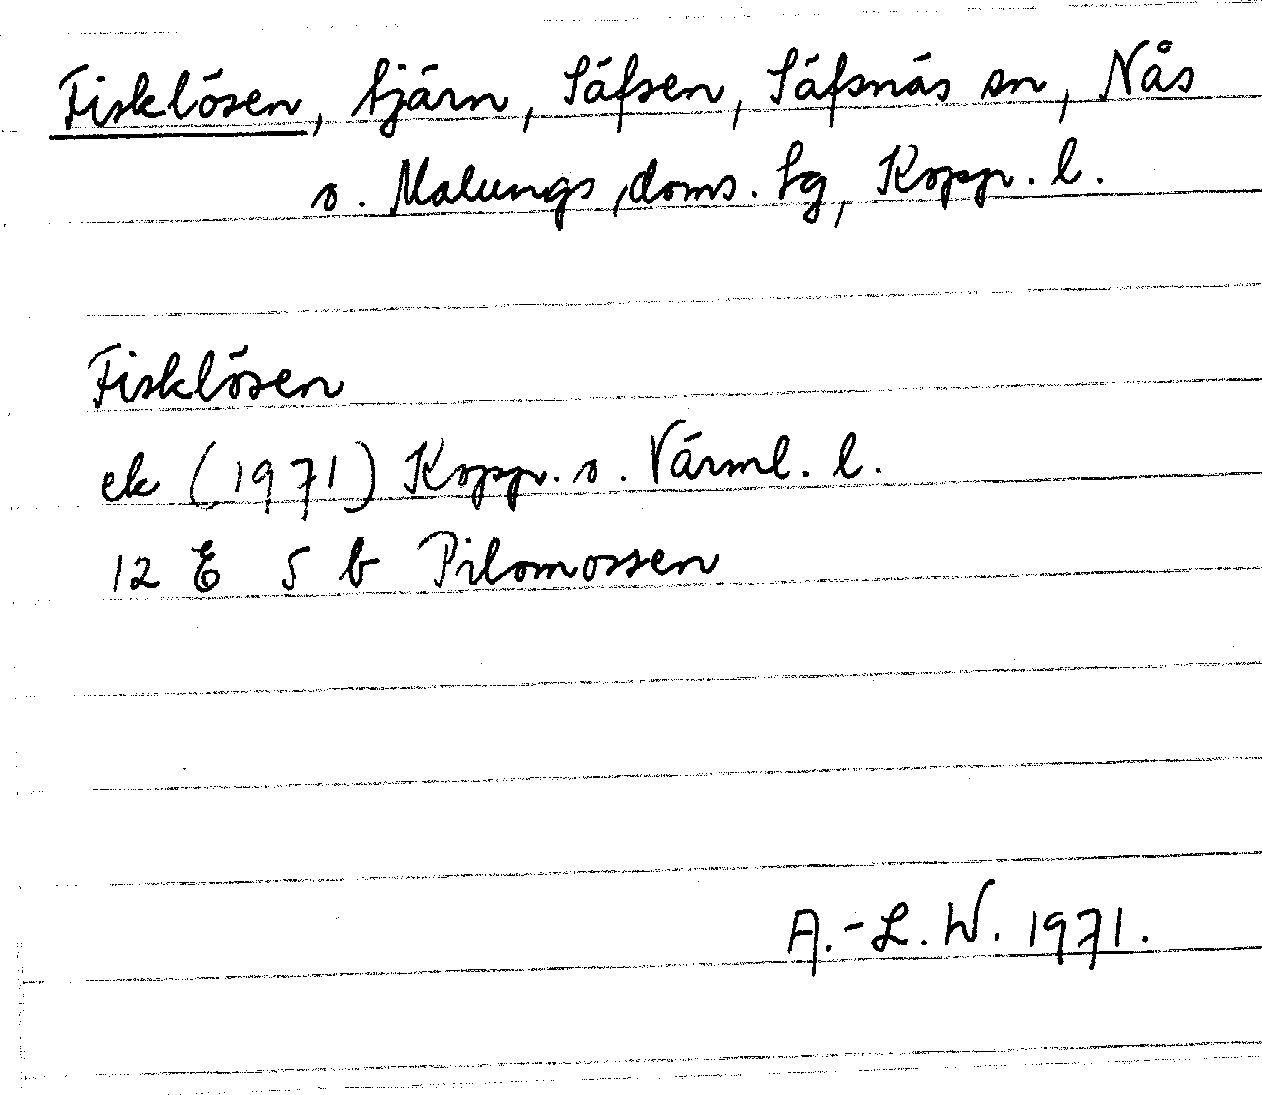 Fisklösen, tjärn, Säfsen, Säfsnäs sn, Nås
o. Malungs doms. tg, Kopp. l.
Fisklösen
ek (1971) Kopp. o. Värml. l.
12 E 5 b Pilomossen
A.-L. W. 1971.